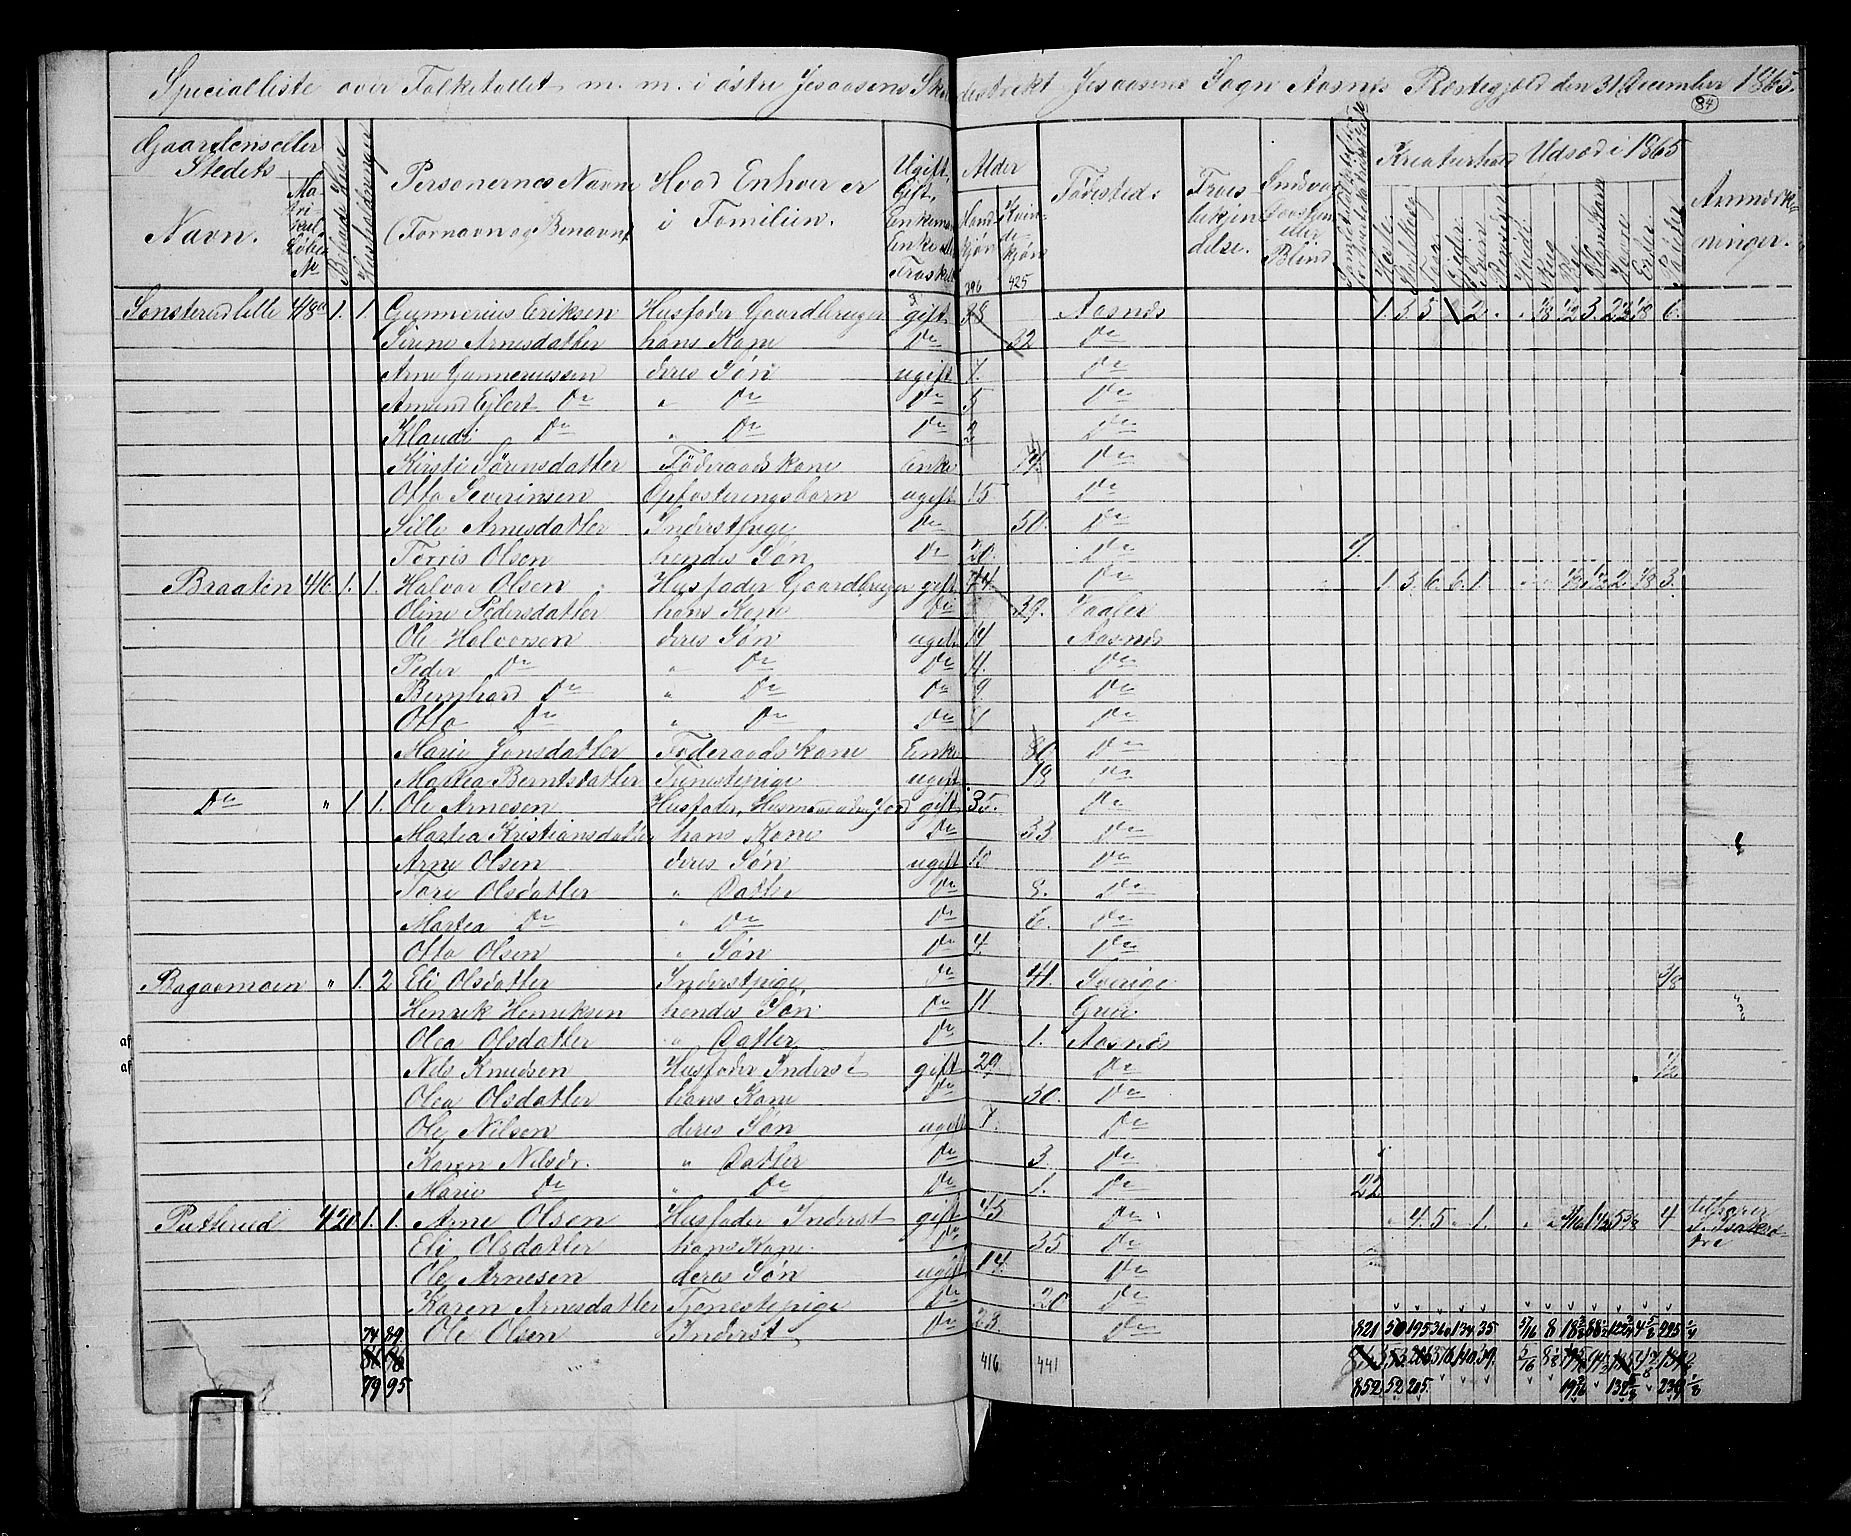 Specialliste over Folketallet m. m. i östre Jesaasens Skoledistrekt Jesaasens Sogn Aasnes Præstegjeld den 31 December 1865.
84
Gaardens eller Stedets Navn. Matrikul Löbe No Beboede Huse Husholdninger Personernes Navne (Fornavn og Benavn) Hvad Enhver er i Familien. Ugift, Gift, Alder Mandkjön Kvindekjön Födested. Troes bekjendelse. Sindssvag Blind. Kreaturhold Udsæd i 1865 Anmærkninger.
396 425
Sönsterud lille 418 1. 1. Gunnerius Eriksen Husfader Gaardbruger gift 38 Aasnes 1. 5. 5 2. 1/8 1/2 3. 1/8 6.
Sirene Arnesdatter hans Kone Do 32 Do
Arne Gunneriussen deres Sön ugift 7. Do
Amund Eilert Do " Do Do 5 Do
Klaudi Do " Do Do 2 Do
Kirsti Sörensdatter Föderaadskone Enke 74. Do
Otto Severinsen Opfostringsbarn ugift 15 Do
Sille Arnesdatter Inderstpige Do 50. Do
Torris Olsen hendes Sön Do 20. Do 9.
Braaten 416. 1. 1. Halvor Olsen Husfader Gaardbruger gift 44 Do 1. 3. 6. 6. 1. 1/2 2. 1/8 3.
Oline Pedersdatter hans Kone Do 39. Vaaler
Ole Halvorsen deres Sön ugift 14 Aasnes
Peder Do " Do Do 11. Do
Bernhard Do " Do Do 9. Do
Otto Do " Do Do Do
Marie Jonsdatter Föderaadskone Enke 80. Do
Marthea Berntsdatter Tjenestepige ugift 18 Do
Do " 1. 1. Ole Arnesen Husfader, Husmand uden Jord gift 35. Do
Martea Kristiansdatter hans Kone Do 33. Do
Arne Olsen deres Sön ugift 10. Do
Tore Olsdatter " Datter Do 8. Do
Martea Do " Do Do 6. Do
Otto Olsen " Sön Do 4. Do
Bagaamoen " 1. 2 Eli Olsdatter Inderstpige Do 41. Sverige 3/8
Henrik Henriksen hendes Sön Do 11 Grue
Olea Olsdatter " Datter Do 1. Aasnes
Nils Knudsen Husfader Inderst gift 29 Do 1/2
Olea Olsdatter hans Kone Do 30. Do
Ole Nilsen deres Sön ugift 7. Do
Karen Nilsdr. " Datter Do 3. Do
Marie Do " Do Do 1. Do 22
Putterud 420 1. 1. Arne Olsen Husfader Inderst gift 45 Do 4. 5 1. 4 tilhörer
Eli Olsdatter hans Kone. Do 35 Do
Ole Arnesen deres Sön ugift 14. Do
Karen Arnesdatter Tjenestepige Do 20 Do
74 89. Ole Olsen Inderst Do 23. Do 821 50 195 360 134 35 5/16 8
416 441
79 95 852 52 205. 239 1/8